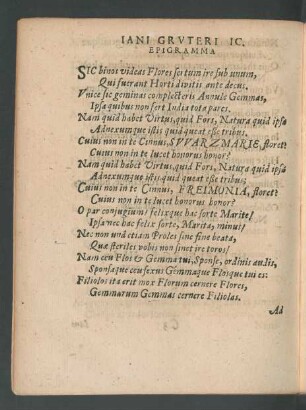 IANI GRVTERI IC.
EPIGRAMMA
SIC binos videas Flores sertum ire sub unum,
Qui fuerant Horti divitis ante decus.
Vnice sic geminas complecteris Annule Gemmas,
Ipsa quibus non fert India tota pares.
Nam quid habet Virtus, quid Fors, Natura quid ipsa
Adnexumque istis quid queat esse tribus.
Cuius non in te Cinnus, SVVARZMARIE, floret?
Cuius non in te lucet honorus honor?
Nam quid habet Virtus, quid Fors, Natura quid ipsa
Adnexumque istis quid queat esse tribus;
Cuius non in te Cinnus, FREIMONIA, floret?
Cuius non in te lucet honorus honor?
O par conjugium! felixque hac sorte Marite!
Ipsa nec hac felix sorte, Marita, minus!
Nec non und etiam Proles sine fine beata,
Quæ steriles vobis non sinet ire toros!
Nam ceu Flos & Gemma tui, Sponse, ordinis audis,
Sponsaque ceu sexus Gemmaque Flosque tui es:
Filiolos ita erit mox Florum cernere Flores,
Gemmarum Gemmas cernere Filiolas.
Ad